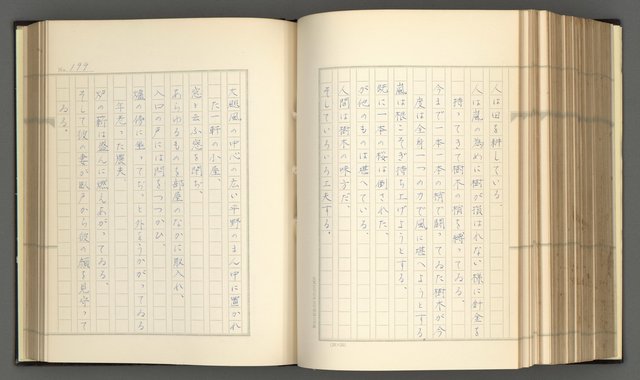 人は田を耕している。
人は嵐の為めに樹が損はれない様に針金を
持ってきて樹木の精を縛ってゐる。
今まで一本一本の精で闘ってゐた樹木が今
度は全身一つの力で風に堪へようとする。
嵐は根こそぎ持ち上げようとする。
既に一本の桜は倒された。
が他のものは堪へている。
人間は樹木の味方だ。
そしていろいろ工夫する。
No. 199
大颱風の中心の広い平野のまん中に置かれ
た一軒の小屋。
窓と云ふ窓を閉ぢ、
あらゆるものを部屋のなかに取入れ、
入口の戸には閂をつつかひ、
爐の傍に坐ってぢっと外をうかがってゐる
年老った農夫
炉の薪は盛んに燃えあがってゐる。
そして彼の妻が臥戸から彼の顔を見守って
ゐる。